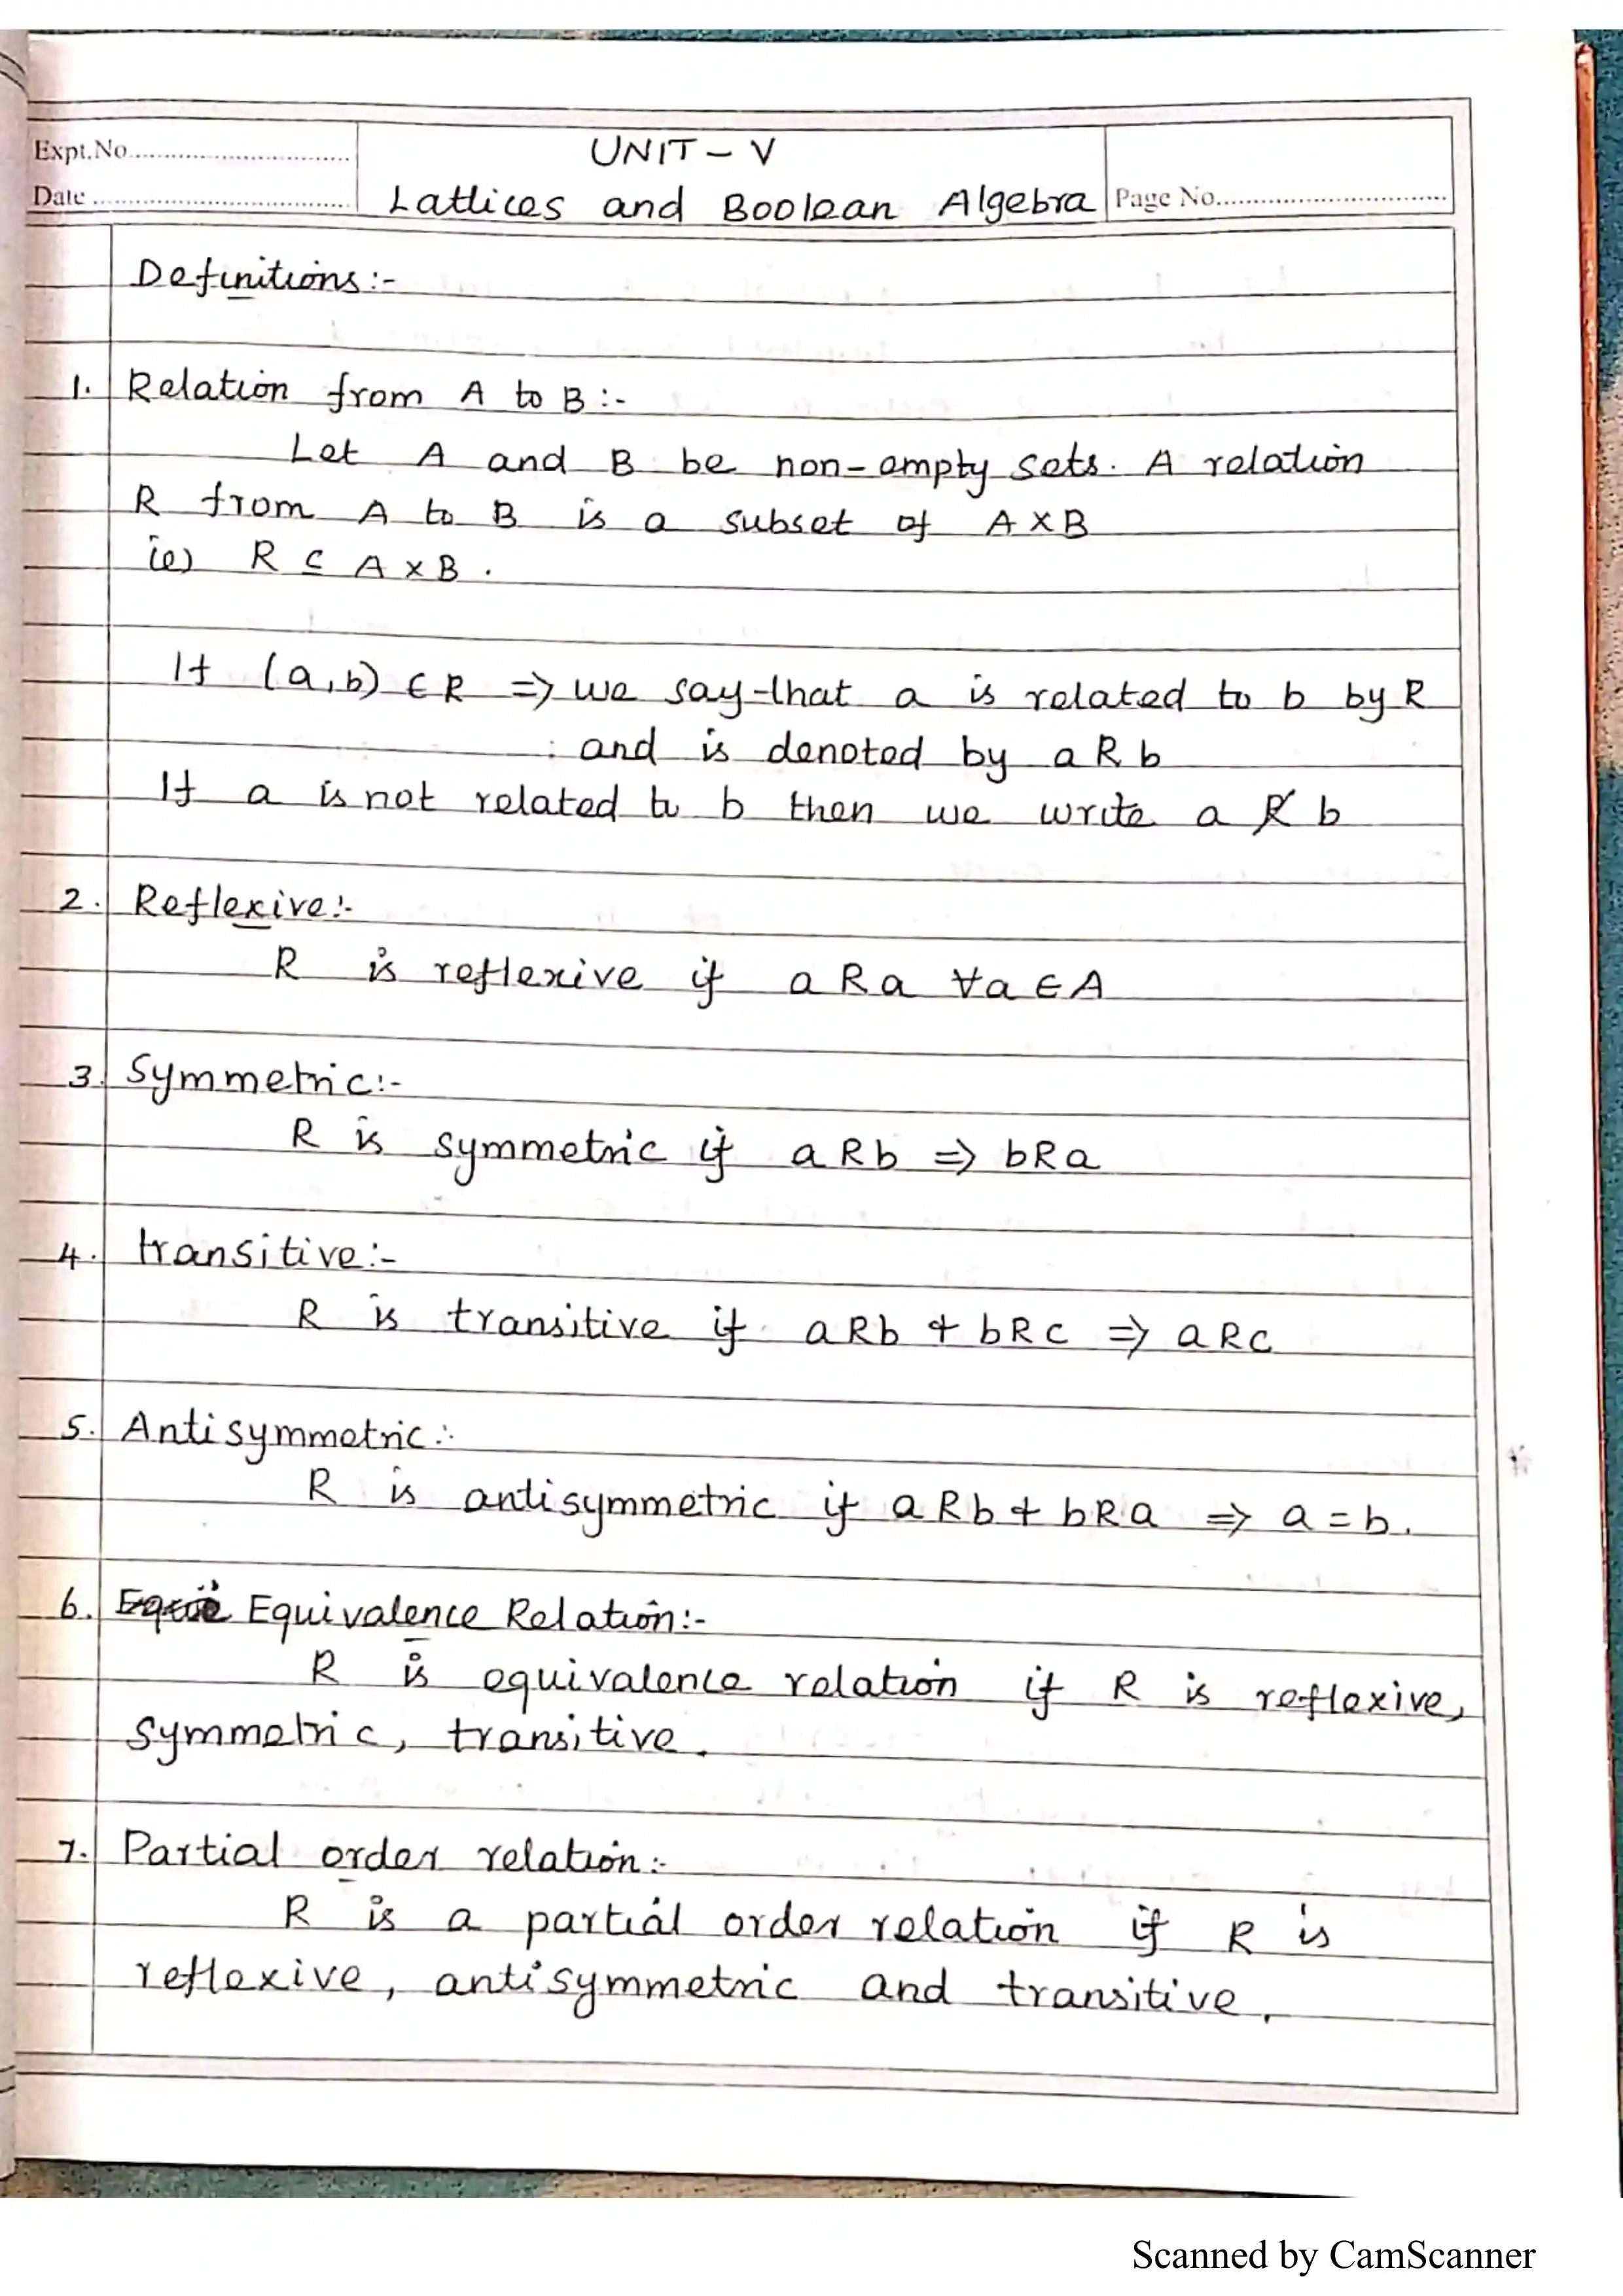 Expt.No.
UNIT - V
Date
Lattices and Boolean Algebra
Page No.
Definitions:-
1. Relation from A to B:-
Let A and B be non-empty sets. A relation
R from A to B is a subset of A×B
ie) R ⊆ A×B.
If (a,b) ∈ R => we say that a is related to b by R
and is denoted by a R b
If a is not related to b then we write a R̸ b
2. Reflexive:-
R is reflexive if a R a ∀a ∈ A
3. Symmetric:-
R is symmetric if a R b => b R a
4. transitive:-
R is transitive if a R b & b R c => a R c
5. Antisymmetric:-
R is antisymmetric if a R b & b R a => a = b.
6. Equivalence Relation:-
R is equivalence relation if R is reflexive,
symmetric, transitive.
7. Partial order relation:-
R is a partial order relation if R is
reflexive, antisymmetric and transitive.
Scanned by CamScanner